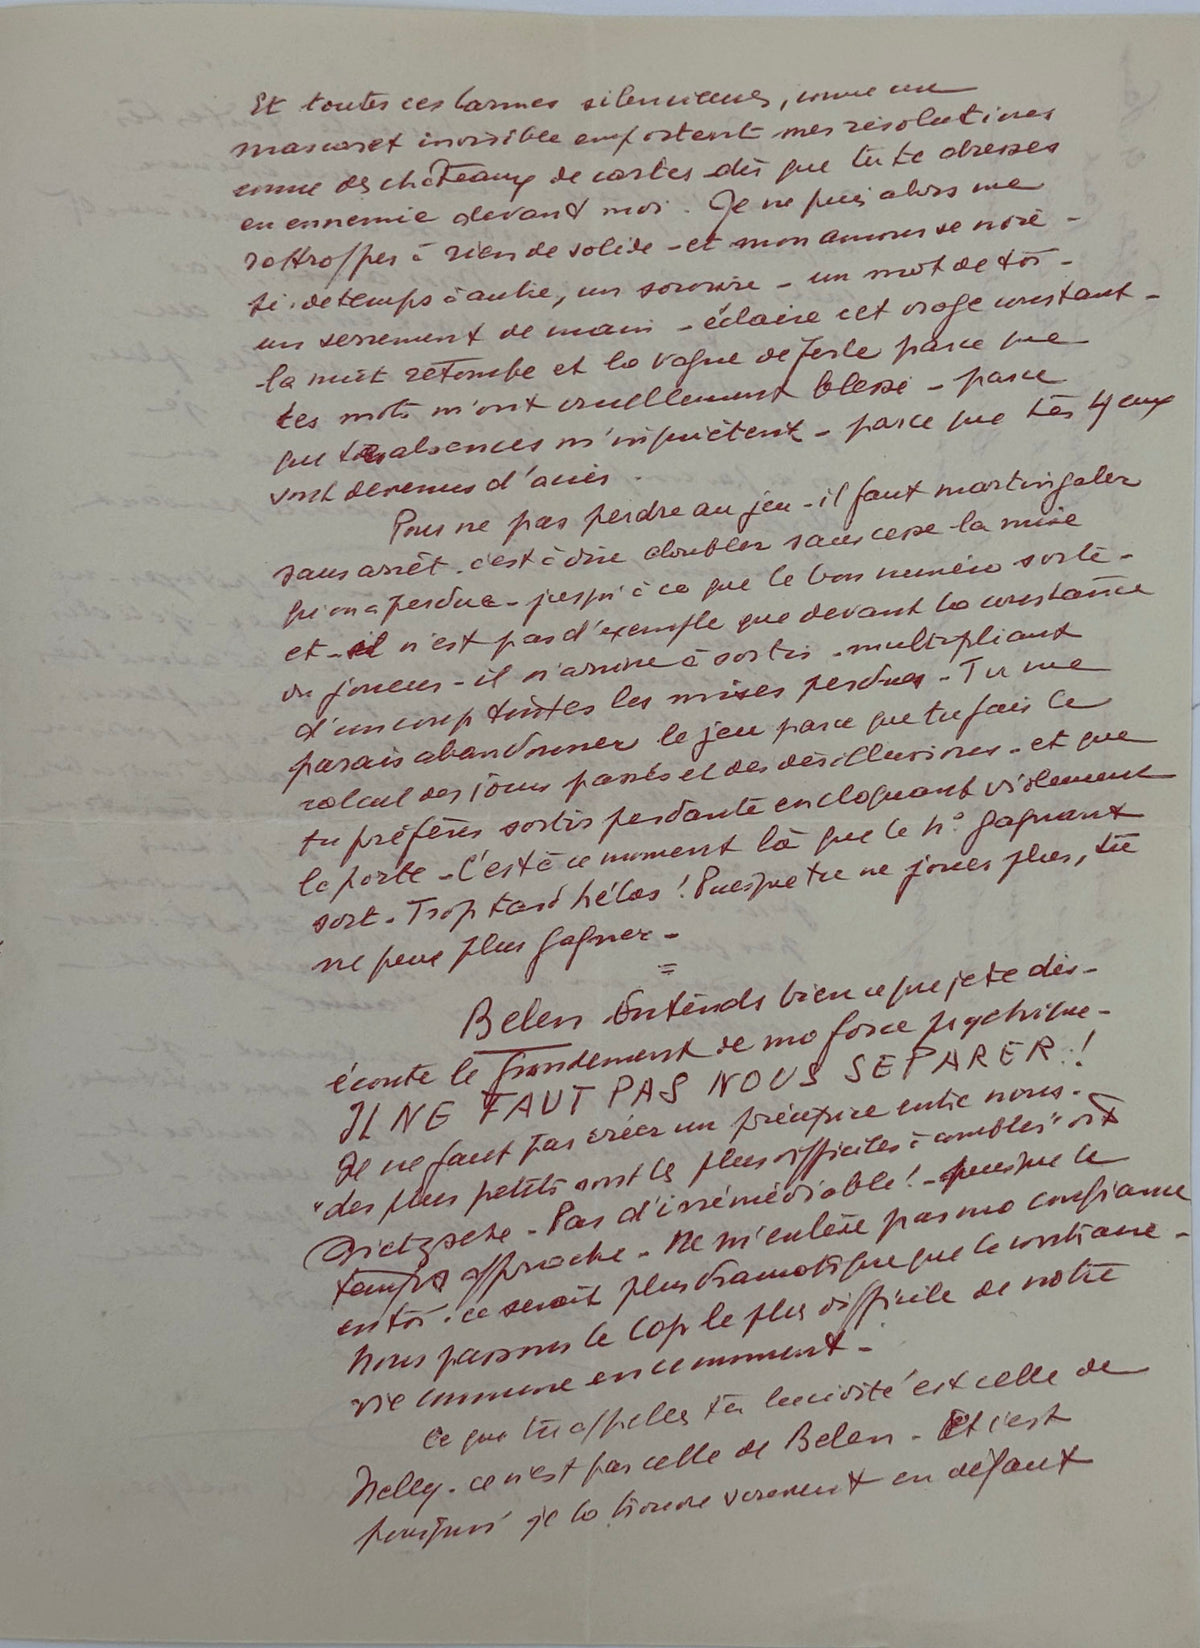 Et toutes ces larmes silencieuses, comme un
mascaret invisible emportent mes résolutions
comme des châteaux de cartes dès que tu te dresses
en ennemie devant moi. Je ne puis alors me
rattraper à rien de solide - et mon amour se noie -
si de temps à autre, un sourire - un mot de toi -
un serrement de main - éclaire cet orage constant -
la nuit retombe et la vague déferle parce que
tes mots m'ont cruellement blessé - parce
que tes absences m'inquiètent - parce que tes yeux
sont devenus d'acier.
Pour ne pas perdre au jeu - il faut martingaler
sans arrêt. c'est à dire doubler sans cesse la mise
qu'on a perdue - jusqu'à ce que le bon numéro sorte -
et - il n'est pas d'exemple que devant la constance
du joueur - il n'arrive à sortir - multipliant
d'un coup toutes les mises perdues - Tu me
parais abandonner le jeu parce que tu fais le
calcul des jours passés et des désillusions - et que
tu préfères sortir perdante en cloquant violement
la porte - C'est à ce moment là que le n° gagnant
sort - Trop tard hélas ! Puisque tu ne joues plus, tu
ne peux plus gagner -
=
Belen Entends bien ce que je te dis -
écoute le grondement de ma force psychique -
IL NE FAUT PAS NOUS SEPARER !
Il ne faut pas créer un précipice entre nous -
"des plus petits sont les plus difficiles à combler" dit
Nietzsche - Pas d'irrémédiable ! - puisque le
temps approche - Ne m'enlève pas ma confiance
en toi. ce serait plus dramatique que le contraire -
Nous passons le Cap le plus difficile de notre
vie commune en ce moment -
Ce que tu appelles ta lucidité est celle de
Nelly. ce n'est pas celle de Belen - Et c'est
pourquoi je la trouve souvent en défaut